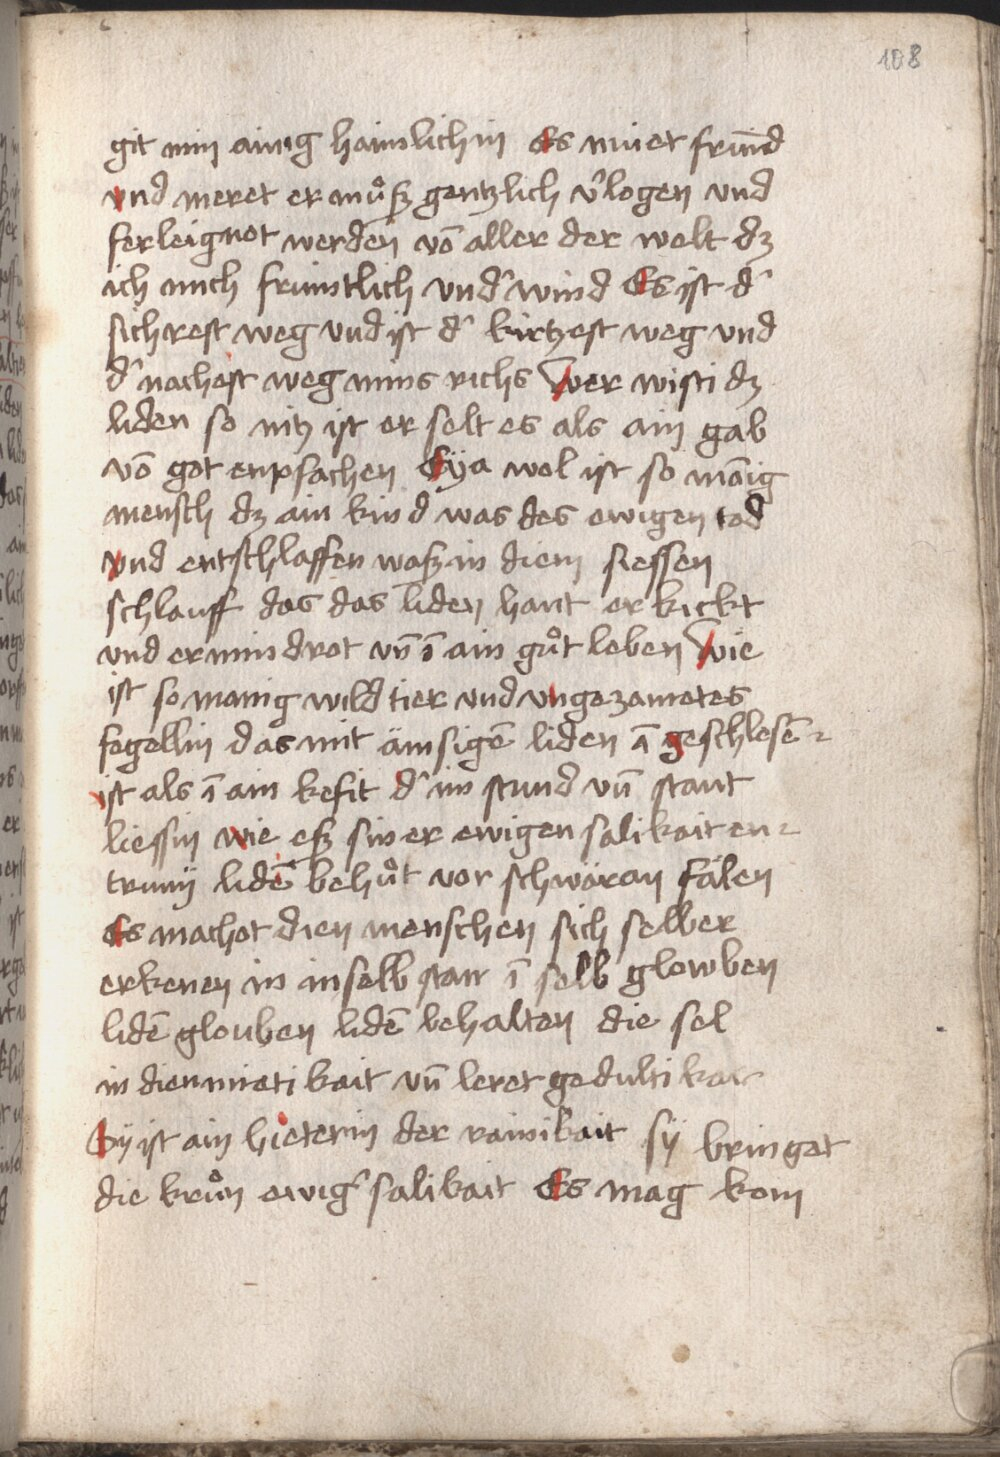 108
git min ainig haimlichin Es minet frúnd
vnd meret er můsz gentzlich v'logen vnd
ferleignot werden võ aller der welt dz
ich mich frúntlich vnd' wind Es ist d'
sichrest weg vnd ist d' kirtzest weg vnd
d' nachest weg mins richs Wer wisti dz
liden so nitz ist er solt es als ain gab
võ got enpfachen Eÿa wol ist so mãnig
mensch dz ain kind was des ewigen tod
vnd entschlaffen wasz in diem siessen
schlauff das das liden hant er kickt
vnd ermindrot vñ ĩ ain gůt leben Wie
ist so manig wild tier vnd vngezametes
fegellin das mit ämsigẽ liden ĩ geschlosẽ
ist als ĩ ain kefit d' im stund vñ statt
liessin wie esz siner ewigen salikait en
trunij lidẽ behůt vor schwäran fälen
Es machot dien menschen sich selber
erkenen in inselb statt ĩ selb glowben
lidẽ glouben lidẽ behalten die sel
in dienmieti kait vñ leret gedulti kait
Sÿ ist ain hieterin der rainikait sÿ bringet
die krůn ewig' salikait Es mag kom